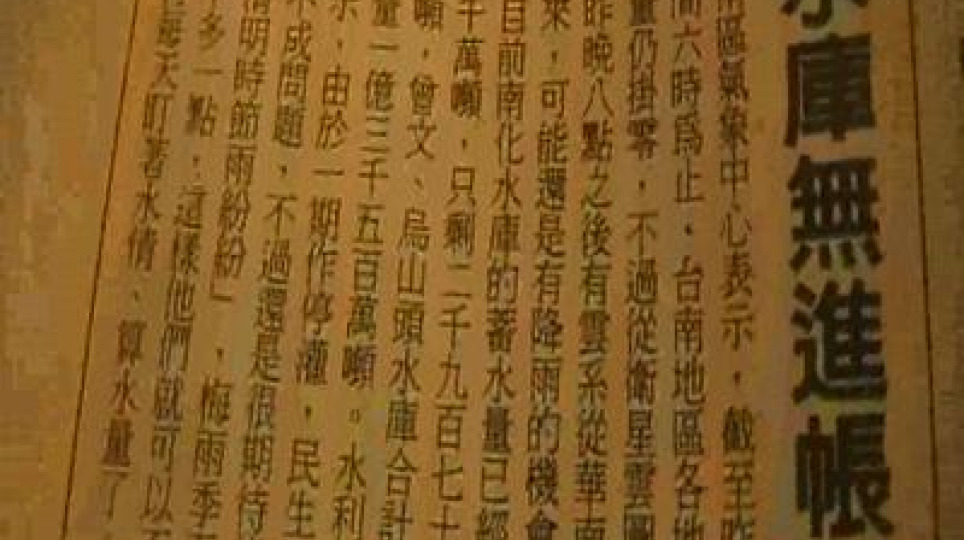 水庫無進帳
南區氣象中心表示，截至昨
間六時為止，台南地區各地
量仍掛零，不過從衛星雲圖
昨晚八點之後有雲系從華南
來，可能還是有降雨的機會
目前南化水庫的蓄水量已經
千萬噸，只剩二千九百七十
噸，曾文、烏山頭水庫合計
量一億三千五百萬噸。水利
示，由於一期作停灌，民生
不成問題，不過還是很期待
清明時節雨紛紛」，梅雨季
多一點，這樣他們就可以
每天盯著水情、算水量了